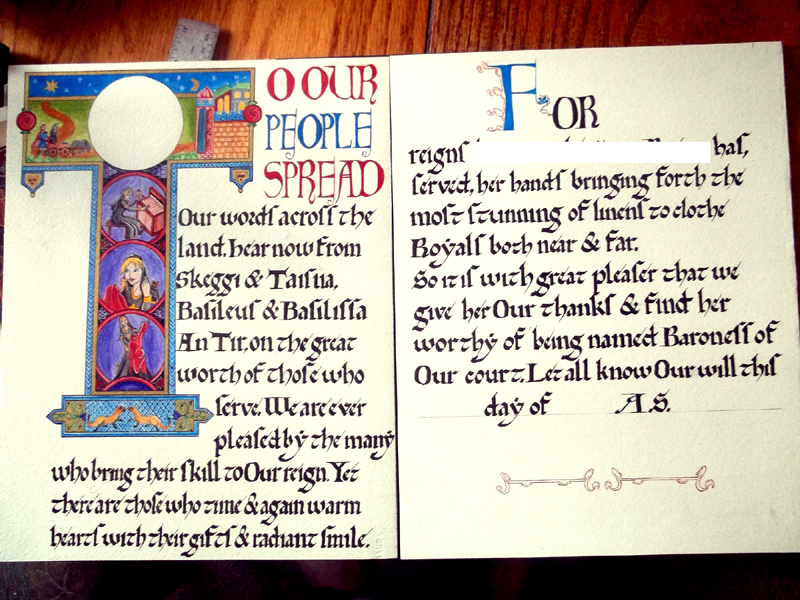 TO OUR
PEOPLE
SPREAD
Our words across the
land. Hear now from
Skeggi & Taisiia,
Basileus & Basilissa
An Tir, on the great
worth of those who
serve. We are ever
pleased by the many
who bring their skill to Our reign. Yet
there are those who time & again warm
hearts with their gifts & radiant smile.
FOR
reigns has,
served, her hands bringing forth the
most stunning of linens to clothe
Royals both near & far.
So it is with great pleaser that we
give her Our thanks & find her
worthy of being named Baroness of
Our court. Let all know Our will this
day of A.S.